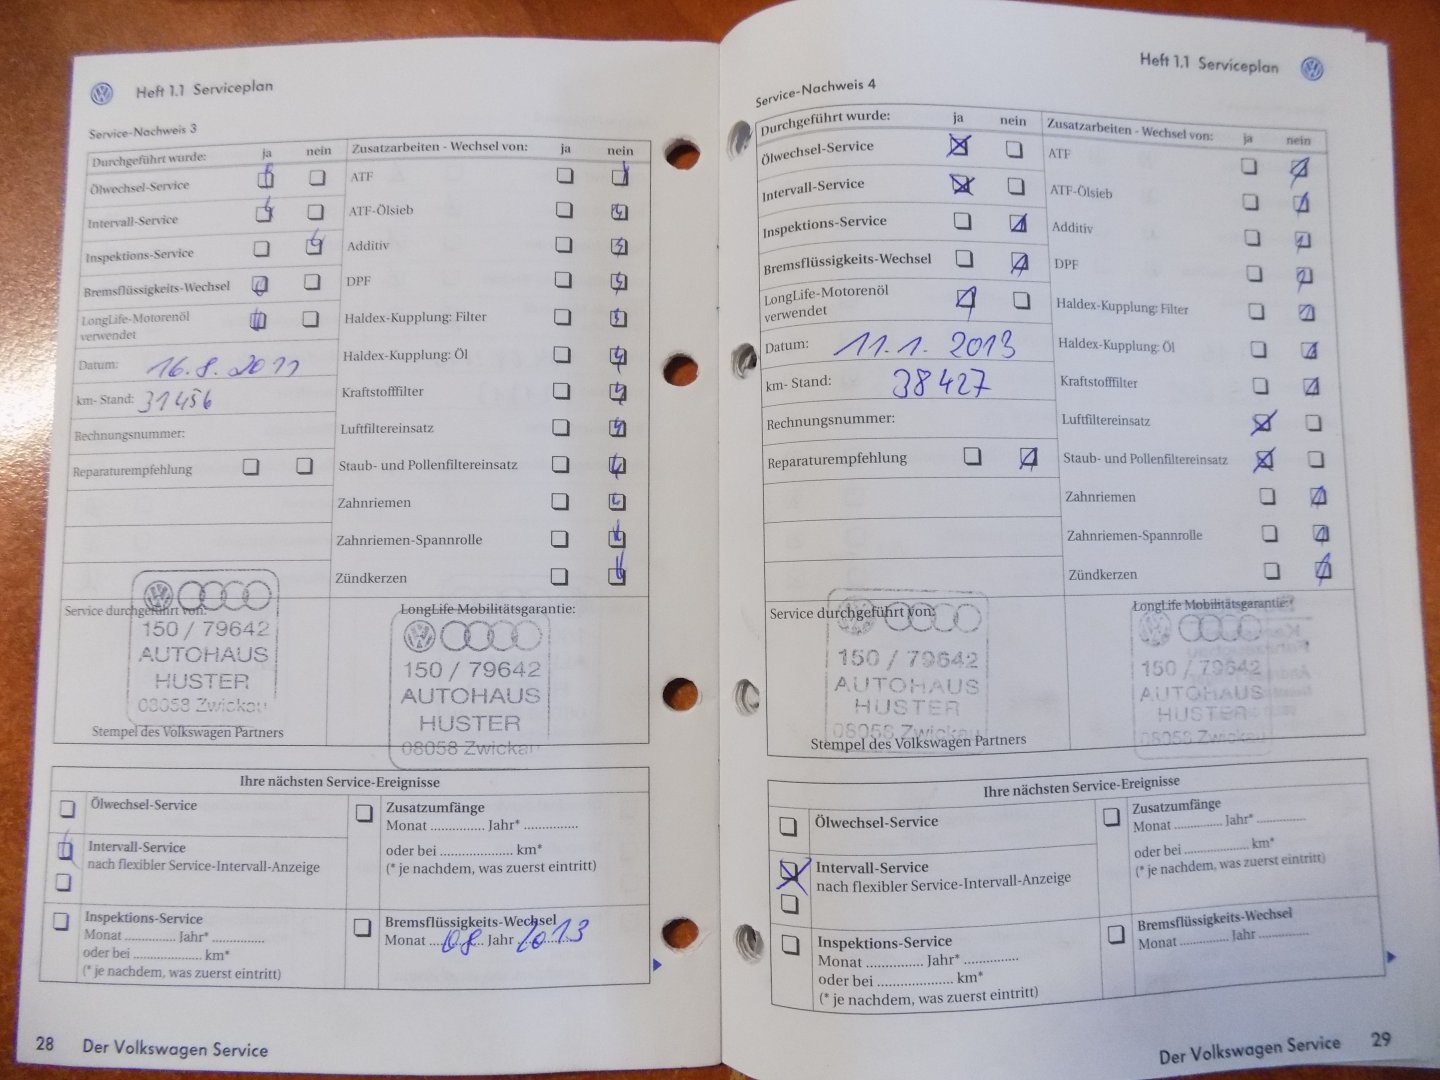 Heft 1.1 Serviceplan
Service-Nachweis 3
Durchgeführt wurde: ja nein
Ölwechsel-Service
Intervall-Service
Inspektions-Service
Bremsflüssigkeits-Wechsel
LongLife-Motorenöl
verwendet
Datum: 16.8.2011
km- Stand: 31456
Rechnungsnummer:
Reparaturempfehlung
Zusatzarbeiten - Wechsel von: ja nein
ATF
ATF-Ölsieb
Additiv
DPF
Haldex-Kupplung: Filter
Haldex-Kupplung: Öl
Kraftstofffilter
Luftfiltereinsatz
Staub- und Pollenfiltereinsatz
Zahnriemen
Zahnriemen-Spannrolle
Zündkerzen
Service durchgeführt von:
150 / 79642
AUTOHAUS
HUSTER
08058 Zwickau
Stempel des Volkswagen Partners
LongLife Mobilitätsgarantie:
150 / 79642
AUTOHAUS
HUSTER
08058 Zwickau
Ihre nächsten Service-Ereignisse
Ölwechsel-Service
Intervall-Service
nach flexibler Service-Intervall-Anzeige
Inspektions-Service
Monat .............. Jahr* ..............
oder bei .................... km*
(* je nachdem, was zuerst eintritt)
Zusatzumfänge
Monat .............. Jahr* ..............
oder bei .................... km*
(* je nachdem, was zuerst eintritt)
Bremsflüssigkeits-Wechsel
Monat ....08.... Jahr 2013
28 Der Volkswagen Service
Heft 1.1 Serviceplan
Service-Nachweis 4
Durchgeführt wurde: ja nein
Ölwechsel-Service
Intervall-Service
Inspektions-Service
Bremsflüssigkeits-Wechsel
LongLife-Motorenöl
verwendet
Datum: 11.1. 2013
km- Stand: 38427
Rechnungsnummer:
Reparaturempfehlung
Zusatzarbeiten - Wechsel von: ja nein
ATF
ATF-Ölsieb
Additiv
DPF
Haldex-Kupplung: Filter
Haldex-Kupplung: Öl
Kraftstofffilter
Luftfiltereinsatz
Staub- und Pollenfiltereinsatz
Zahnriemen
Zahnriemen-Spannrolle
Zündkerzen
Service durchgeführt von:
150 / 79642
AUTOHAUS
HUSTER
08058 Zwickau
Stempel des Volkswagen Partners
LongLife Mobilitätsgarantie:
150 / 79642
AUTOHAUS
HUSTER
08058 Zwickau
Ihre nächsten Service-Ereignisse
Ölwechsel-Service
Intervall-Service
nach flexibler Service-Intervall-Anzeige
Inspektions-Service
Monat .............. Jahr* ..............
oder bei .................... km*
(* je nachdem, was zuerst eintritt)
Zusatzumfänge
Monat .............. Jahr* ..............
oder bei .................... km*
(* je nachdem, was zuerst eintritt)
Bremsflüssigkeits-Wechsel
Monat .............. Jahr ..............
Der Volkswagen Service 29